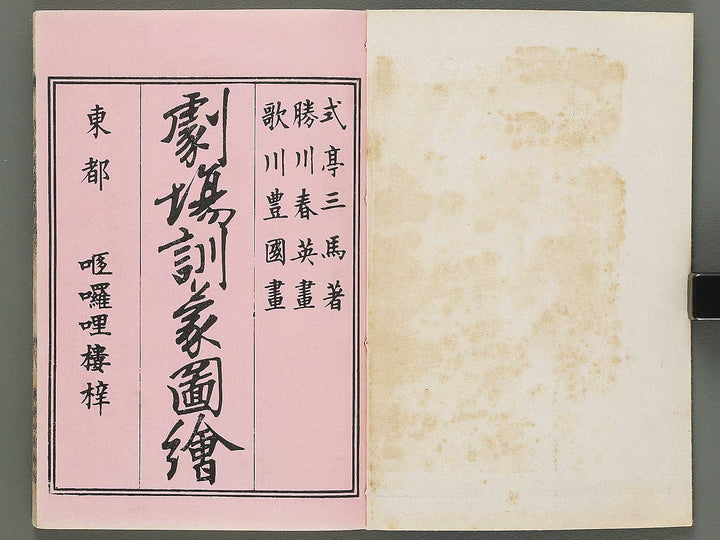 式亭三馬著
勝川春英畫
歌川豊國畫
劇場訓蒙圖繪
東都 咂囉哩樓梓